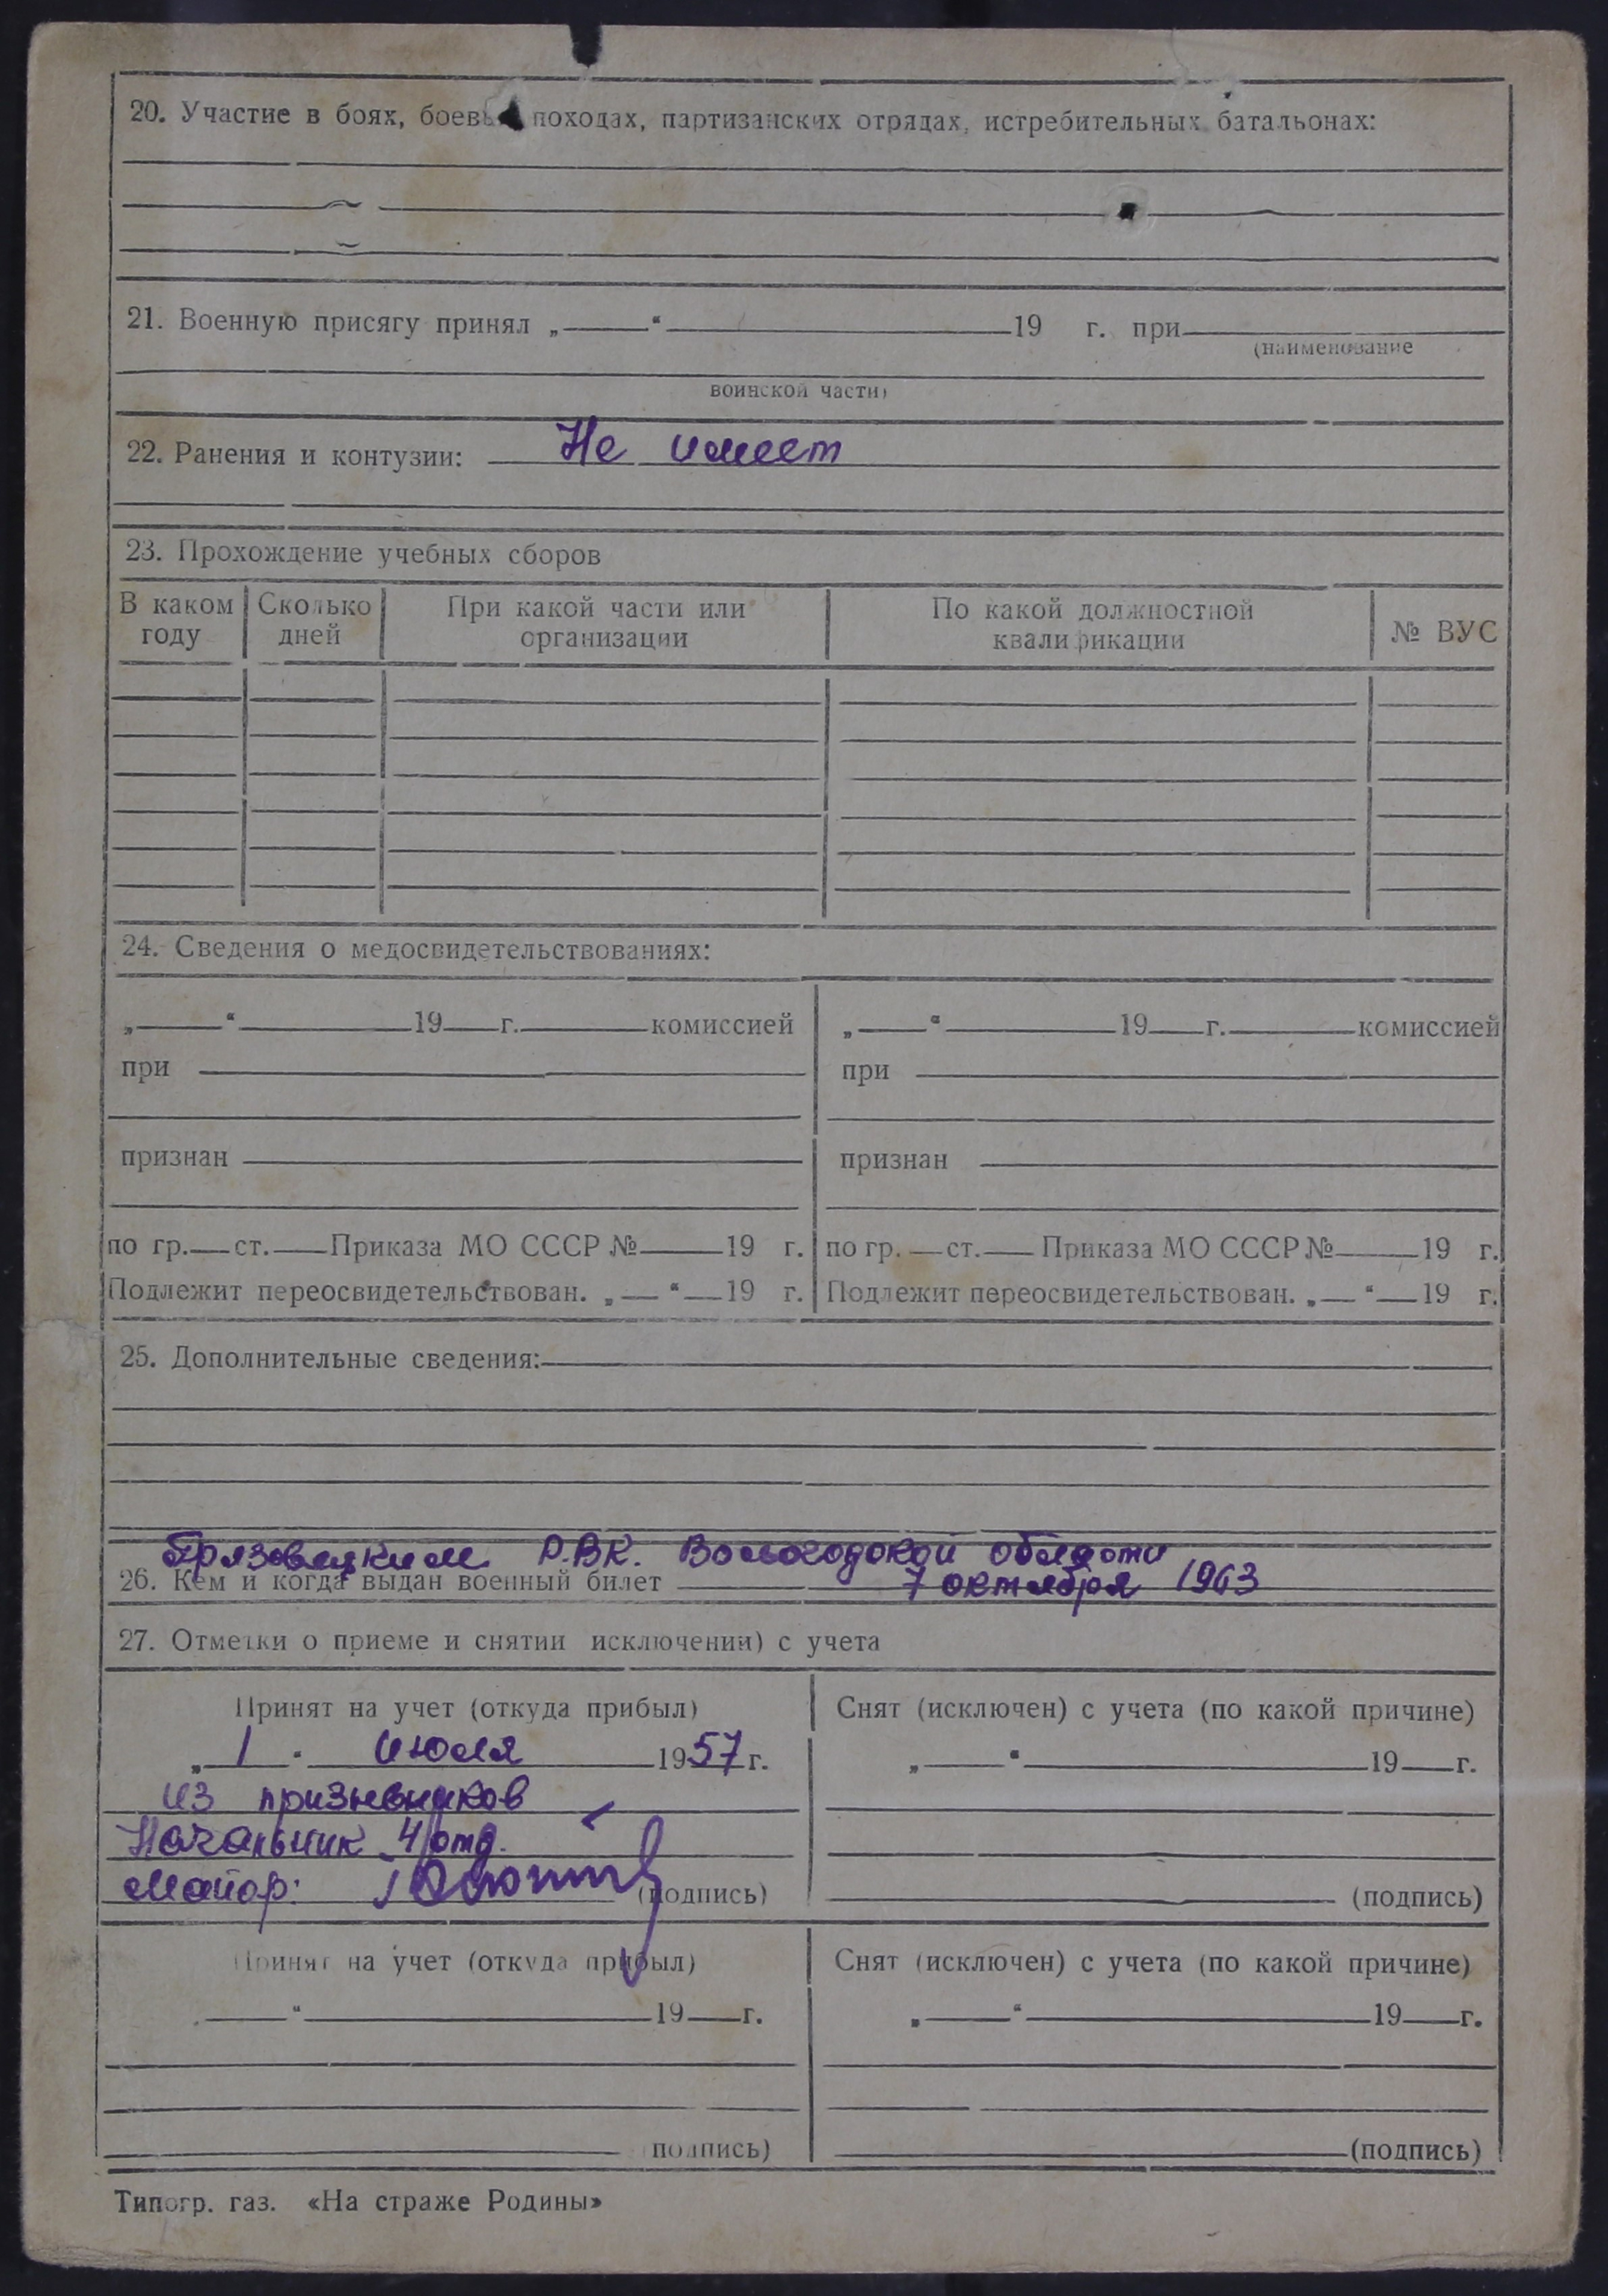 20. Участие в боях, боевых походах, партизанских отрядах, истребительных батальонах:
21. Военную присягу принял „ “ 19 г. при
(наименование
воинской части)
22. Ранения и контузии: Не имеет
23. Прохождение учебных сборов
В каком году Сколько дней При какой части или организации По какой должностной квалификации № ВУС
24. Сведения о медосвидетельствованиях:
„ “ 19 г. комиссией „ “ 19 г. комиссией
при при
признан признан
по гр. ст. Приказа МО СССР № 19 г. по гр. ст. Приказа МО СССР № 19 г.
Подлежит переосвидетельствован. „ “ 19 г. Подлежит переосвидетельствован. „ “ 19 г.
25. Дополнительные сведения:
Грязовецким Р.В.К. Вологодской области
26. Кем и когда выдан военный билет 7 октября 1963
27. Отметки о приеме и снятии исключении) с учета
Принят на учет (откуда прибыл) Снят (исключен) с учета (по какой причине)
„ 1 “ июля 1957 г. „ “ 19 г.
из призывников
Начальник 4 отд.
майор: (подпись) (подпись)
Принят на учет (откуда прибыл) Снят (исключен) с учета (по какой причине)
„ “ 19 г. „ “ 19 г.
подпись) (подпись)
Типогр. газ. «На страже Родины»